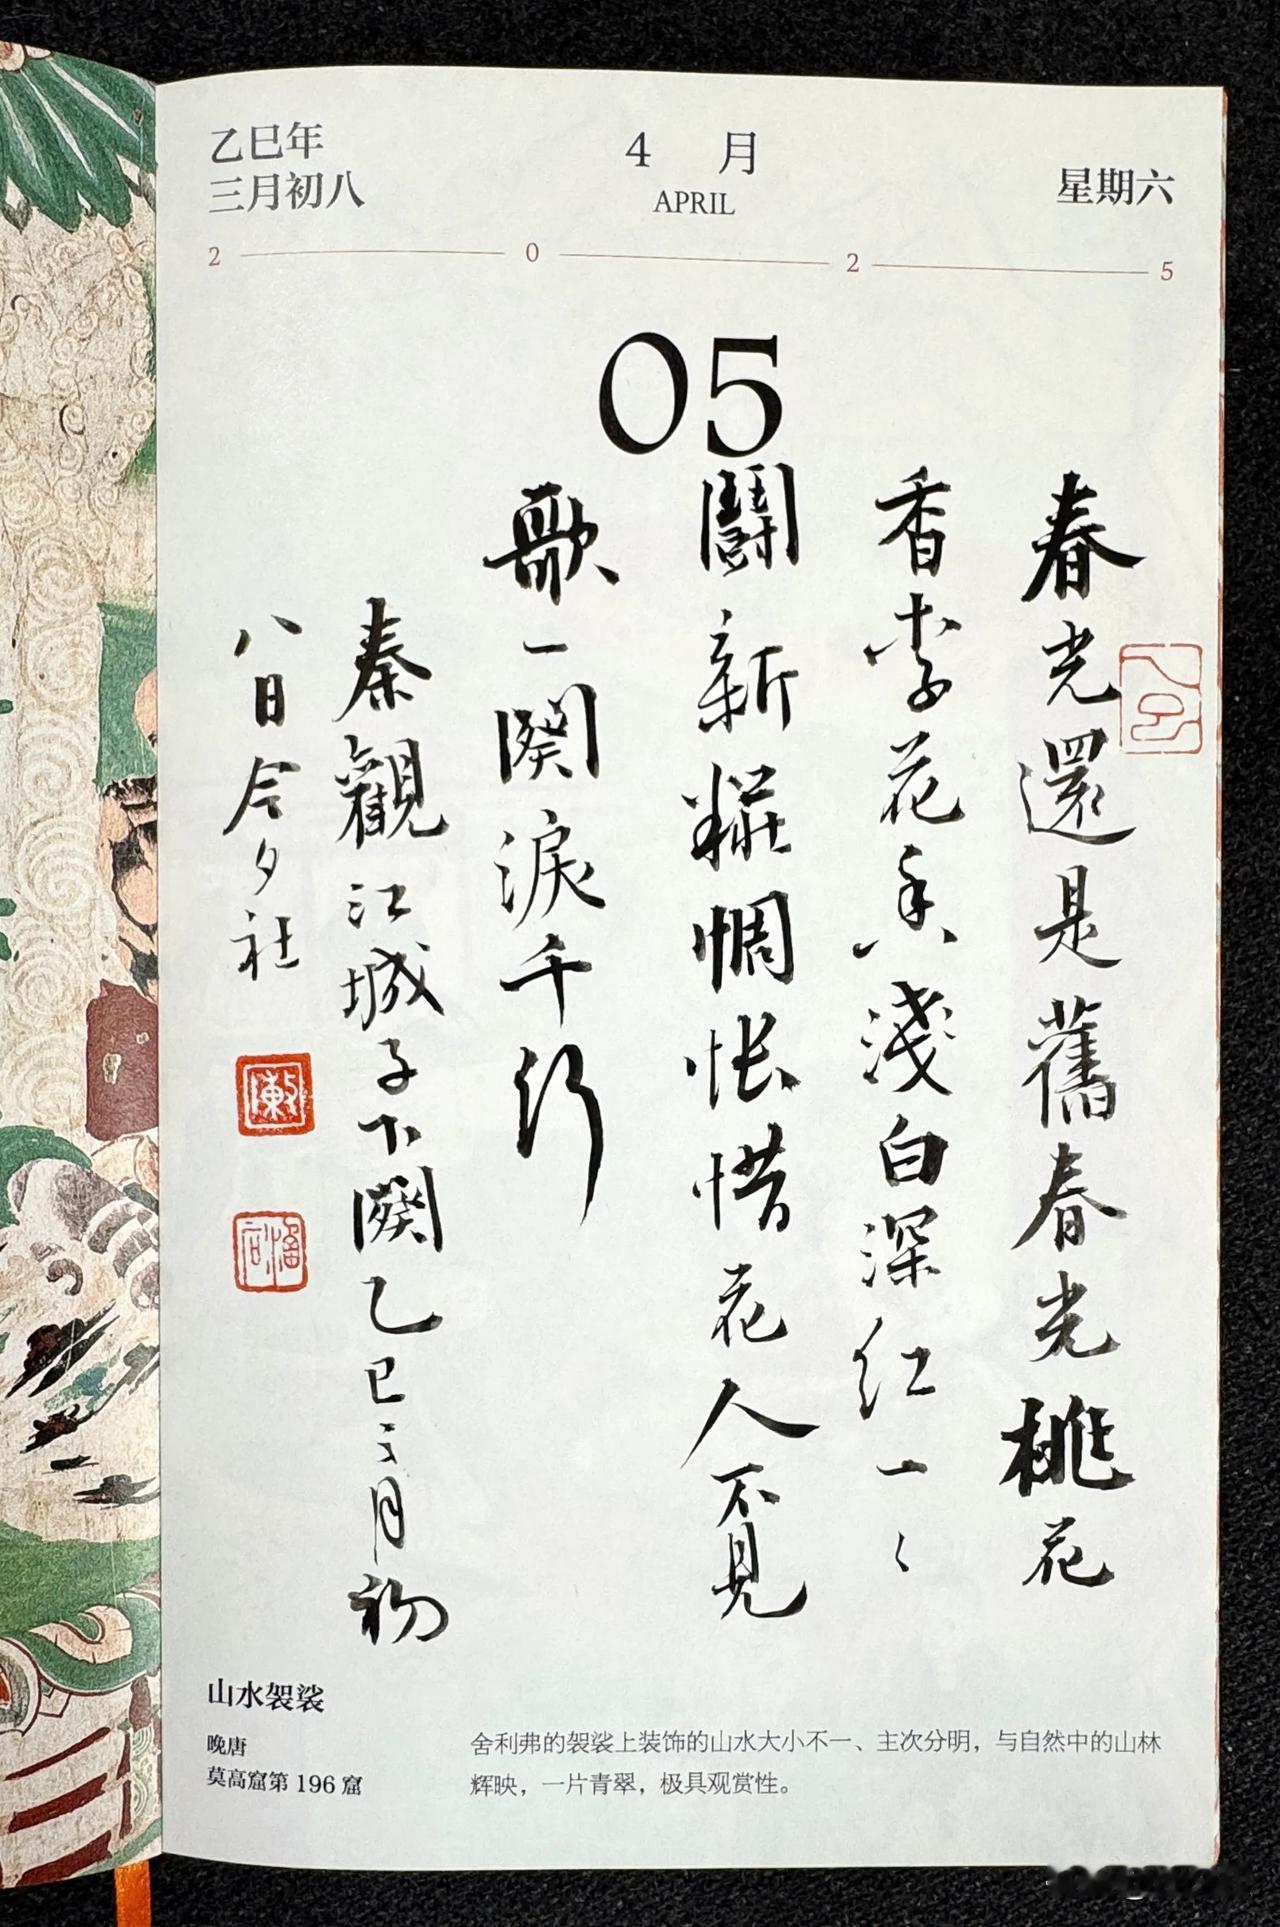 乙巳年
三月初八
4 月
APRIL
星期六
2 0 2 5
05
春光還是舊春光桃花
香李花香淺白深紅一〻
鬪新糚惆怅惜花人不見
歌一闋淚千行
秦觀江城子下闋乙巳三月初
八日今夕社
山水袈裟
晚唐
莫高窟第 196 窟
舍利弗的袈裟上装饰的山水大小不一、主次分明，与自然中的山林
辉映，一片青翠，极具观赏性。